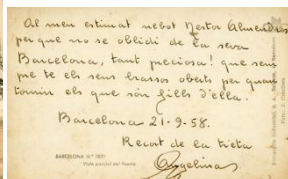 Al meu estimat nebot Nestor Almendros
per que no se oblidi de la seva
Barcelona, tant preciosa! que sem
pre te els seus brassos oberts per quan
tornin els que són fills d'ella.
Barcelona 21-9-58.
Recort de la tieta
Angelina
BARCELONA N.º 1831
Vista parcial del Puerto